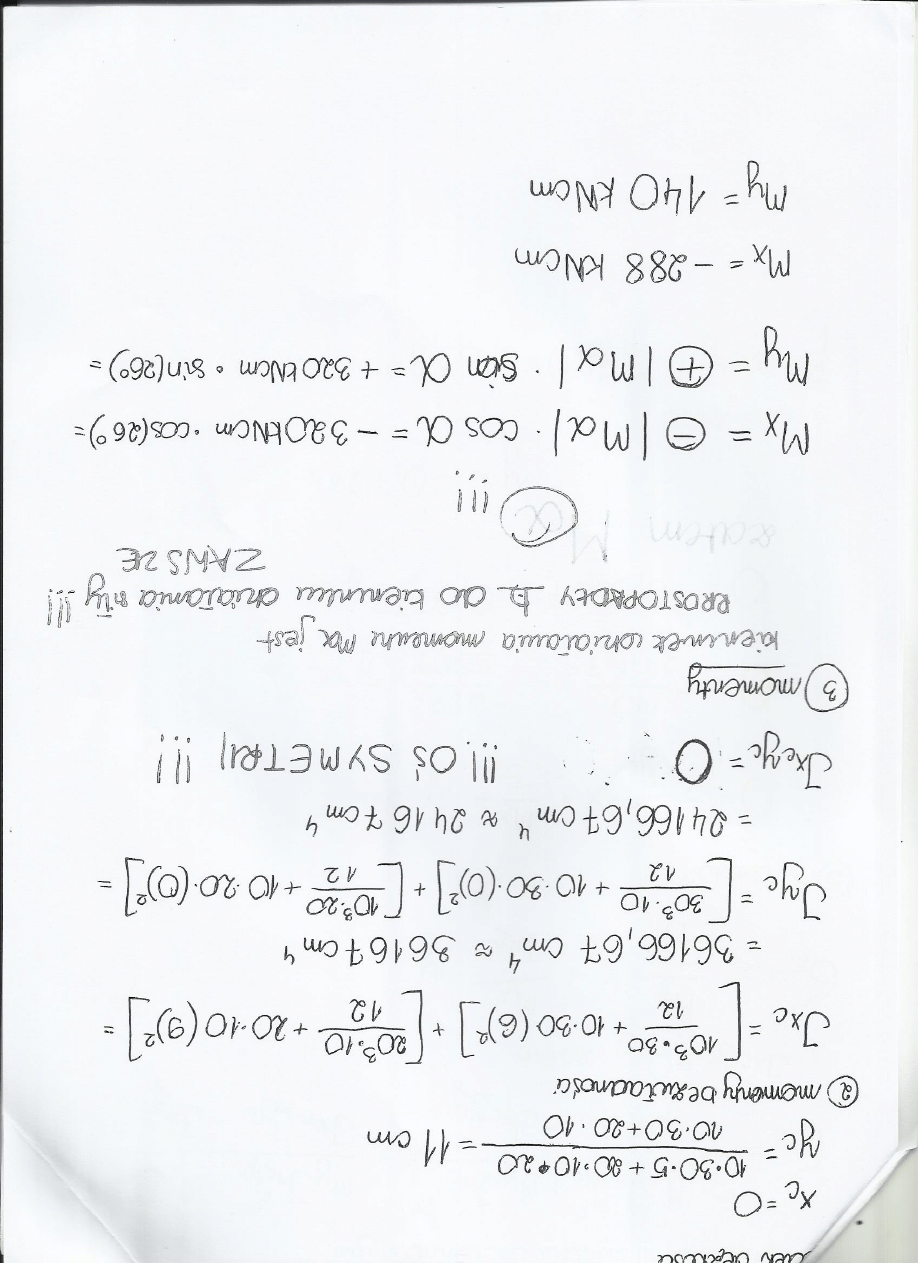 x_c = 0
y_c = \frac{10·30·5 + 20·10·20}{10·30+20·10} = 11 cm
② momenty bezwładności
J_{xc} = [\frac{10^3·30}{12} + 10·30·(6)^2] + [\frac{20^3·10}{12} + 20·10·(9)^2] =
= 36166,67 cm^4 ≈ 36167 cm^4
J_{yc} = [\frac{30^3·10}{12} + 10·30·(0)^2] + [\frac{10^3·20}{12} + 10·20·(0)^2] =
= 24166,67 cm^4 ≈ 24167 cm^4
J_{xcyc} = 0 !!! OŚ SYMETRII !!!
③ momenty
kierunek działania momentu Mα jest
PROSTOPADŁY ⊥ do kierunku działania siły !!!
ZAWSZE
zatem Mα !!!
M_x = ⊖ |Mα| · cos α = - 320 kNcm · cos(26°) =
M_y = ⊕ |Mα| · sin α = + 320 kNcm · sin(26°) =
M_x = - 288 kNcm
M_y = 140 kNcm